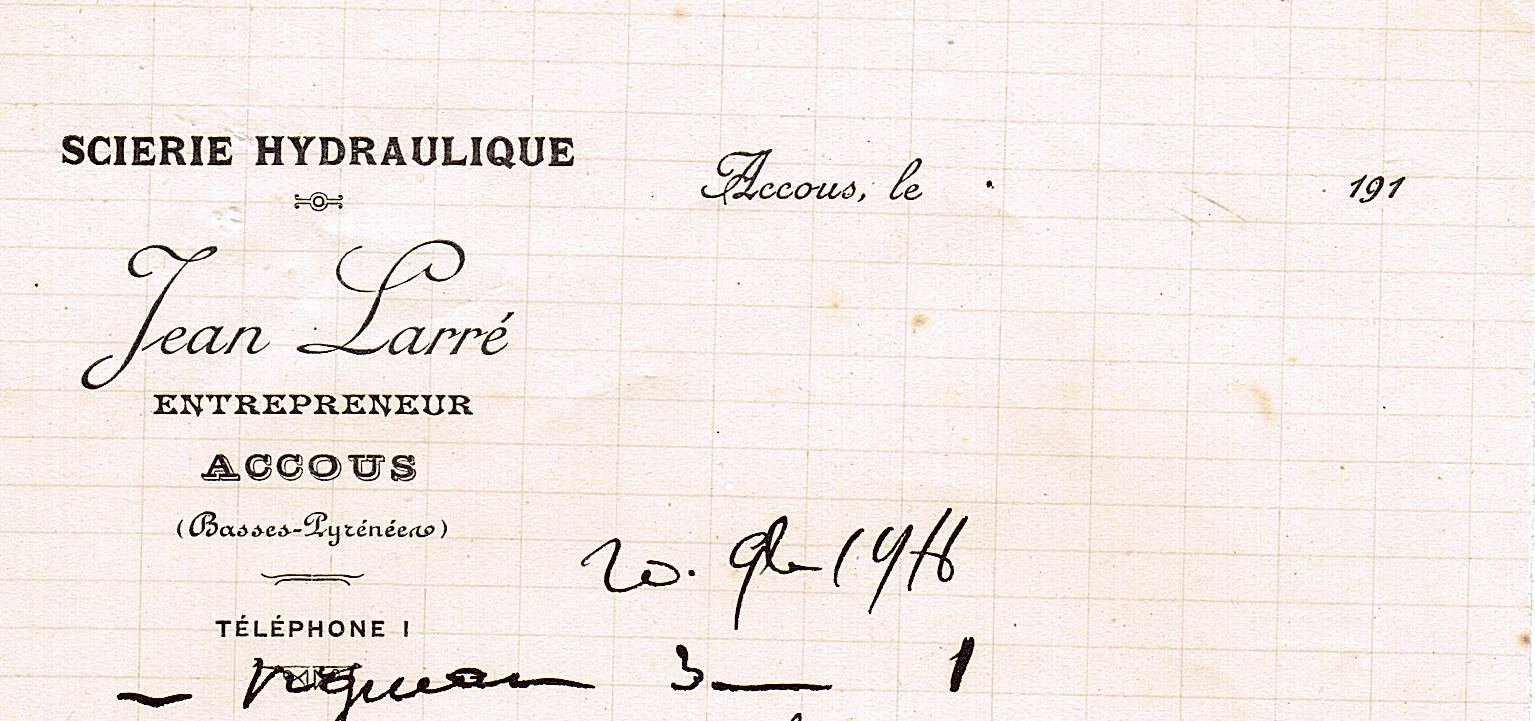 SCIERIE HYDRAULIQUE
Accous, le 191
Jean Larré
ENTREPRENEUR
ACCOUS
(Basses-Pyrénées)
20. 9bre
TÉLÉPHONE 1
3 — 1